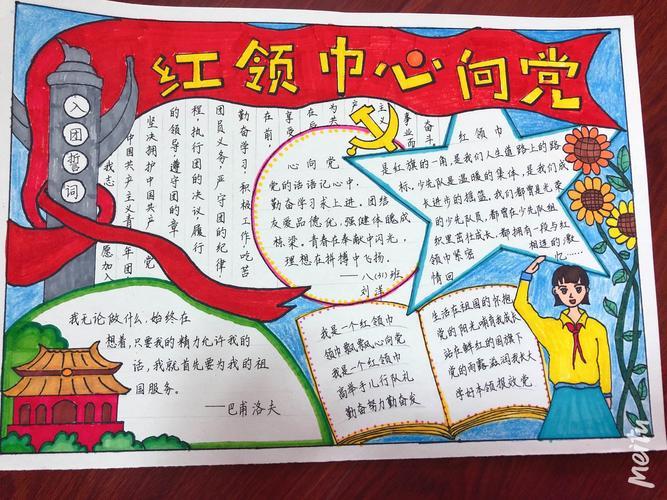 红领巾心向党
入团誓词
我志愿加入
中国共产主义青年团
坚决拥护中国共产党
的领导,遵守团的章
程,执行团的决议,履行
团员义务,严守团的纪律,
勤奋学习,积极工作,吃苦
在前,
享受
在后
为共
主义
事业而
奋斗
心向党
党的话语记心中,
勤奋学习求上进。团结
友爱品德优,强健体魄成
栋梁。青春在奉献中闪光,
理想在拼搏中飞扬。
——八(31)班
刘洋
红领巾
是红旗的一角,是我们人生道路上的路
标。少先队是温暖的集体,是我们成
长进步的摇篮。我们都曾是光荣
的少先队员,都曾在少先队组
织里茁壮成长,都拥有一段与红
领巾紧密相连的激
情回忆……
我无论做什么,始终在
想着,只要我的精力允许我的
话,我就首先要为我的祖
国服务。
——巴甫洛夫
我是一个红领巾
领巾飘飘心向党
我是一个红领巾
高举手儿行队礼
勤奋努力勤奋发
生活在祖国的怀抱
党的阳光哺育我成长
站在鲜红的国旗下
党的雨露滋润我长大
学好本领报效党
Meitu